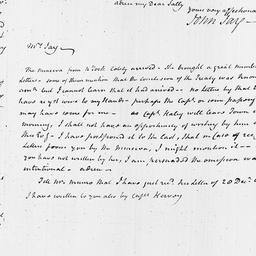 adieu my Dear Sally
yours very affectionately
John Jay
Mrs. Jay
The Minerva from N. York lately arrived. She brought a great number
Letters. some of them mention that the conclusion of the Treaty was known
but I cannot learn that it had arrived. no letters by that
have as yet come to my Hands. perhaps the Capt. or some passenger
may have some for me. as Capt. Haley will leave Town
morning, I shall not have an opportunity of writing by him
I have postponed it to the last, that in case of
Letters from you by the Minerva, I might mention it
you have not written by her, I am persuaded the omission was
intentional. adieu
Tell Mr. Munro that I have just recd. his Letter of 20 Decr.
I have written to you also by Capt. Kervey